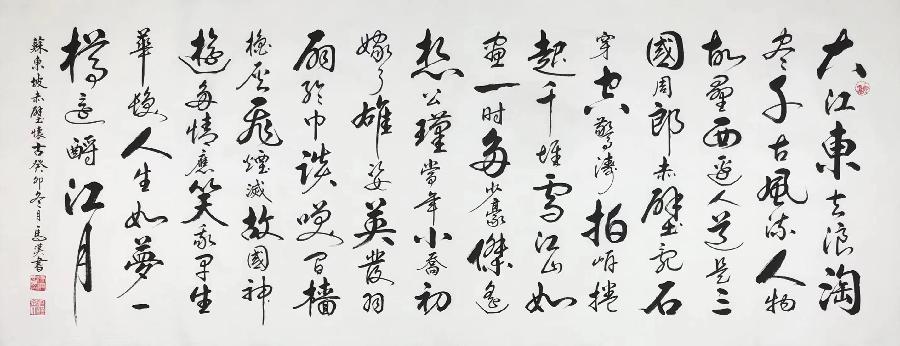 大江東去浪淘
盡千古風流人物
故壘西邊人道是三
國周郎赤壁亂石
穿空驚濤拍岸捲
起千堆雪江山如
畫一时多少豪傑遙
想公瑾當年小喬初
嫁了雄姿英發羽
扇綸巾談笑間檣
櫓灰飛煙滅故國神
遊多情應笑我早生
華髮人生如夢一
樽還酹江月
蘇東坡赤壁懷古癸卯冬月書